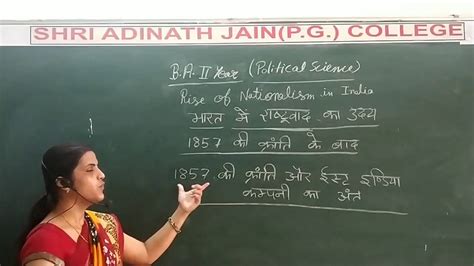 SHRI ADINATH JAIN(P.G.) COLLEGE
B.A. II Year (Political Science)
Rise of Nationalism in India
भारत में राष्ट्रवाद का उदय
1857 की क्रांति के बाद
1857 की क्रांति और ईस्ट इण्डिया
कम्पनी का अंत